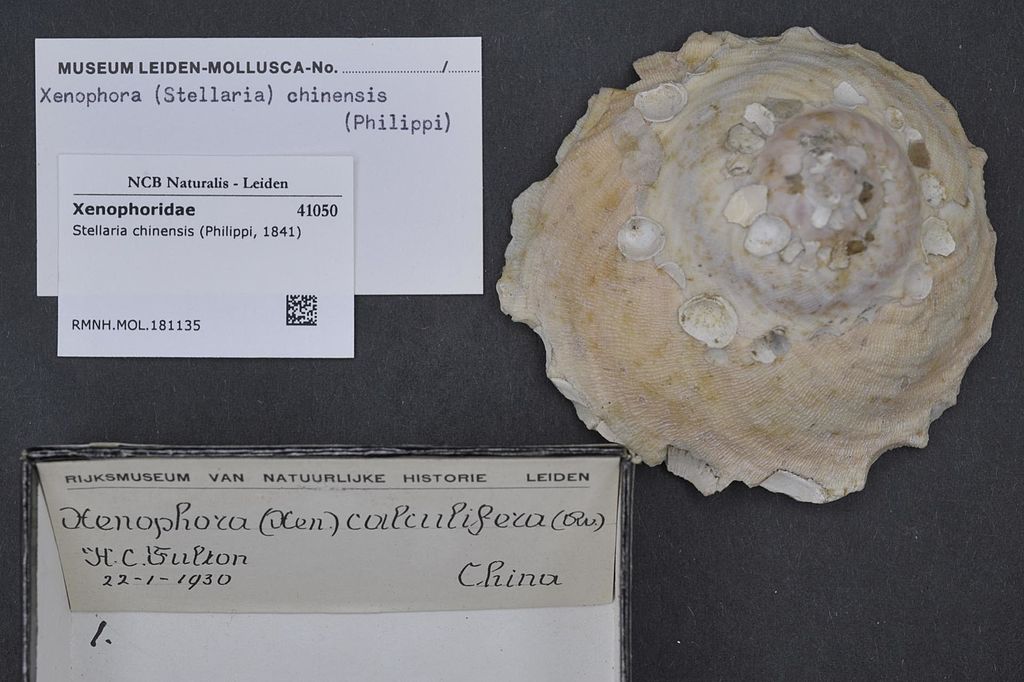 MUSEUM LEIDEN-MOLLUSCA-No. ............................/........
Xenophora (Stellaria) chinensis
(Philippi)
NCB Naturalis - Leiden
Xenophoridae 41050
Stellaria chinensis (Philippi, 1841)
RMNH.MOL.181135
RIJKSMUSEUM VAN NATUURLIJKE HISTORIE LEIDEN
Xenophora (Xen) calculifera (Rv.)
H.C. Fulton
22-1-1930 China
1.